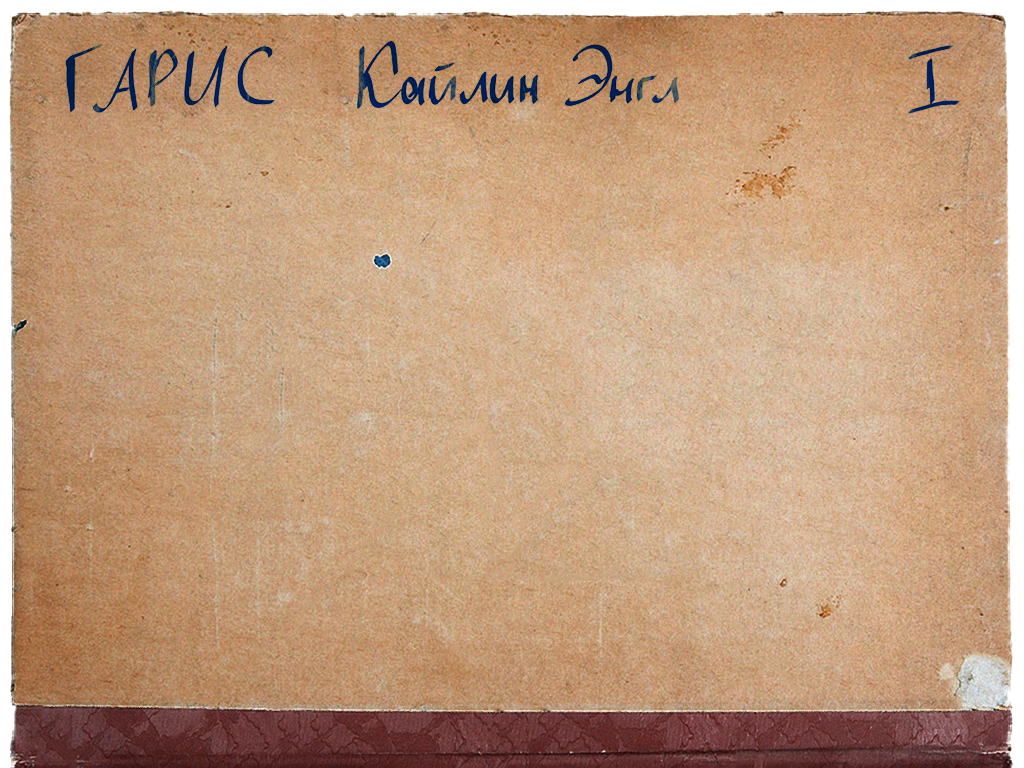 ГАРИС Кайлин Энгл I